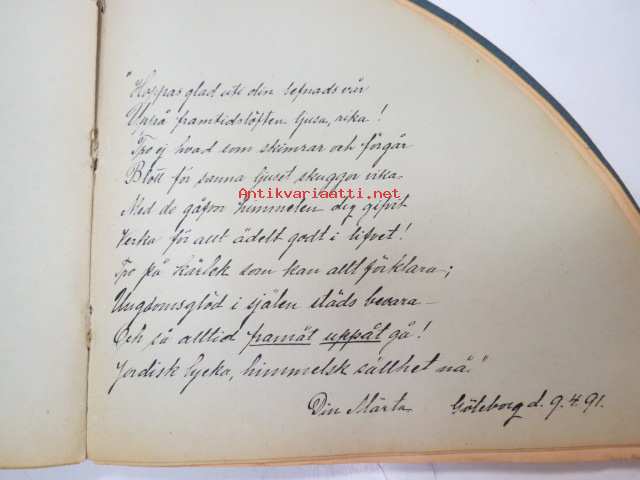 "Hoppas glad uti din lefnads vår
Uppå framtidslöften ljusa, rika!
Tro ej hvad som skimrar och förgår
Blott för sanna ljuset skuggor vika.
Antikvariaatti.net
Med de gåfvor himmelen dig gifvit
Verka för allt ädelt godt i lifvet!
Tro på kärlek som kan allt förklara;
Ungdomsglöd i själen städs bevara –
Och så alltid framåt uppåt gå!
Jordisk lycka, himmelsk sällhet nå."
Din Märta. Göteborg d. 9.4.91.